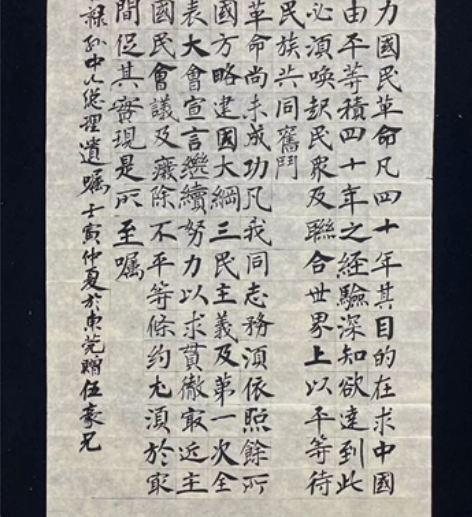 力國民革命凡四十年其目的在求中國
由平等積四十年之經驗深知欲達到此
必須喚起民衆及聯合世界上以平等待
民族共同奮鬥
革命尚未成功凡我同志務須依照餘所
國方略建國大綱三民主義及第一次全
表大會宣言繼續努力以求貫徹最近主
國民會議及廢除不平等條約尤須於最
間促其實現是所至囑
錄孫中山總理遺囑壬寅仲夏於東莞贈伍豪兄